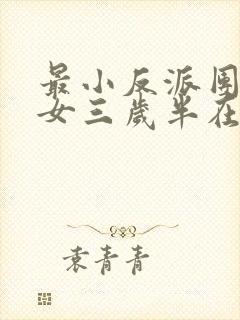 最小反派团
女三岁半在
袁青青